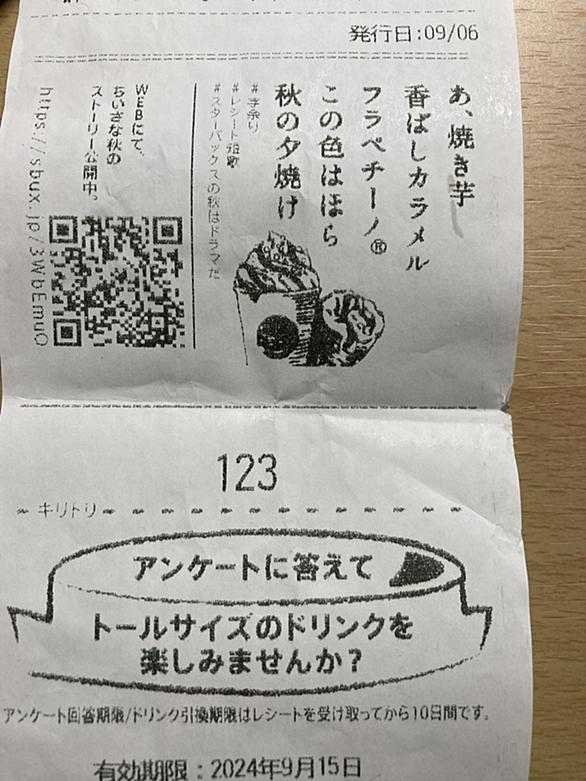 発行日:09/06
あ、焼き芋
香ばしカラメル
フラペチーノ®
この色はほら
秋の夕焼け
#季余り
#レシート短歌
#スターバックスの秋はドラマだ
WEBにて、
ちいさな秋の
ストーリー公開中。
https://sbux.jp/3WbEmuO
123
キリトリ
アンケートに答えて
トールサイズのドリンクを
楽しみませんか?
アンケート回答期限/ドリンク引換期限はレシートを受け取ってから10日間です。
有効期限:2024年9月15日